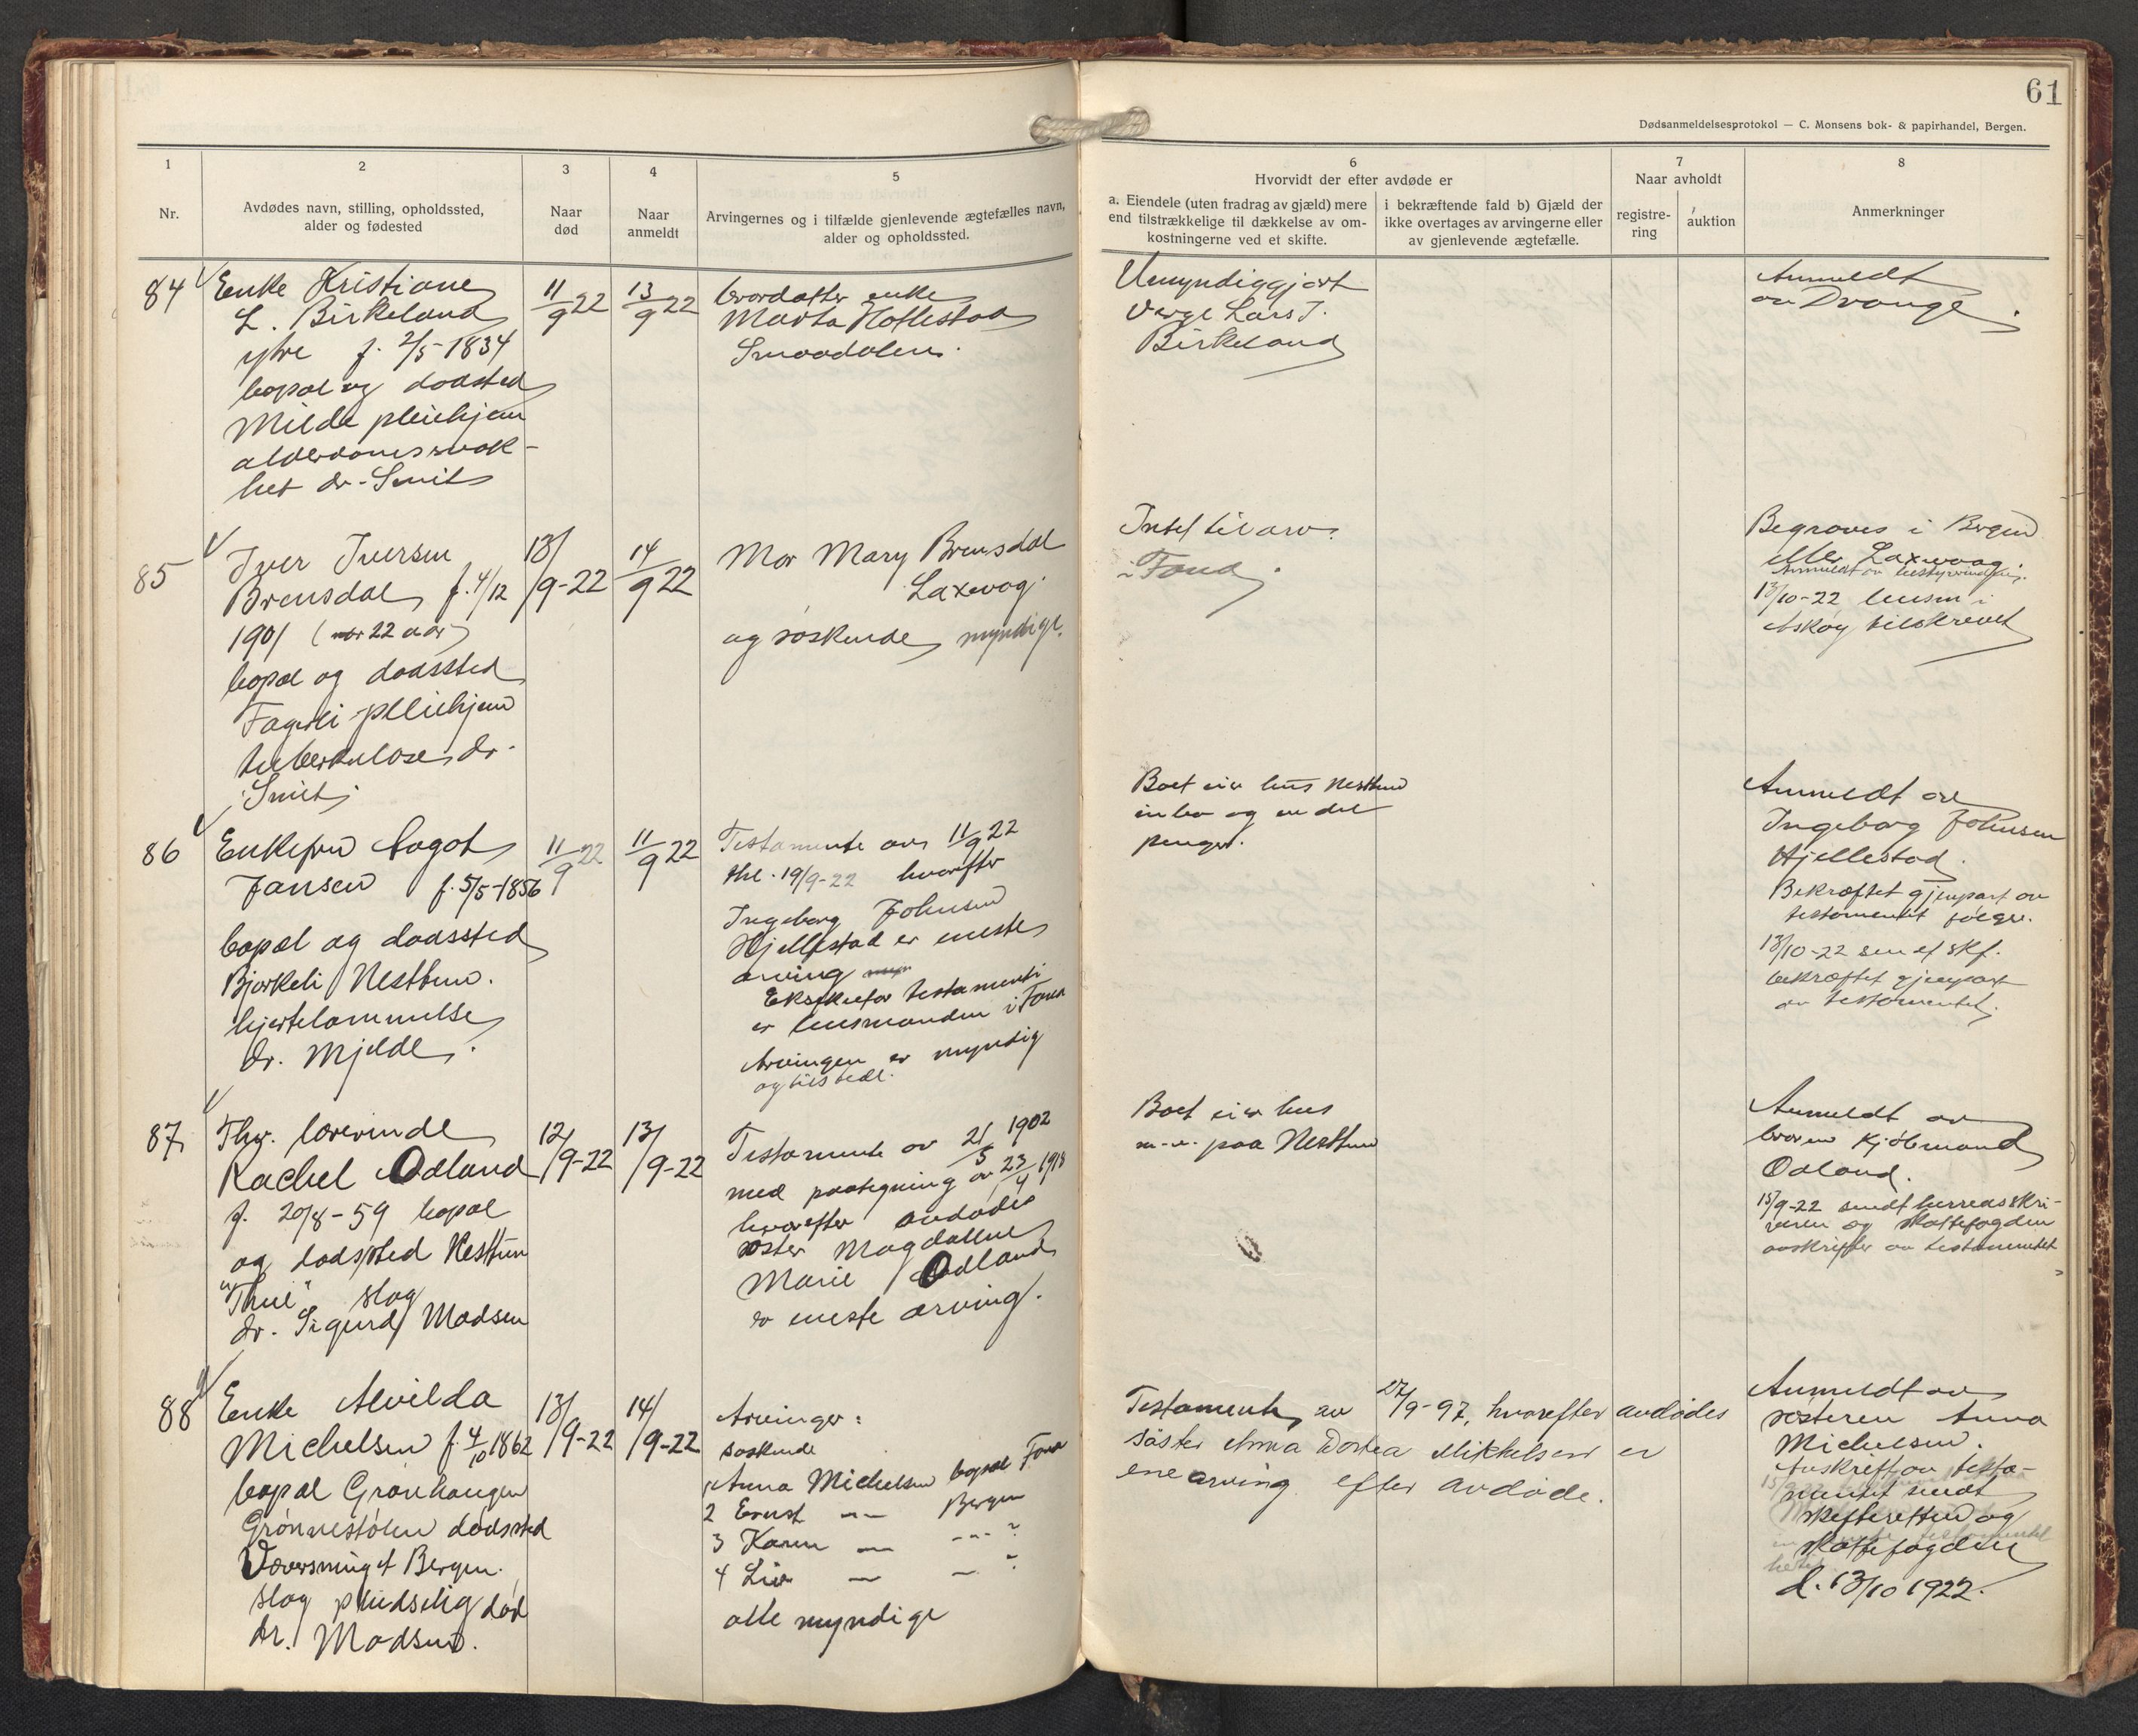 61
Dødsanmeldelsesprotokol — C. Monsens bok- & papirhandel, Bergen.
1
Nr.
2
Avdødes navn, stilling, opholdssted,
alder og fødested
3
Naar
død
4
Naar
anmeldt
5
Arvingernes og i tilfælde gjenlevende ægtefælles navn,
alder og opholdssted.
6
Hvorvidt der efter avdøde er
a. Eiendele (uten fradrag av gjæld) mere
end tilstrækkelige til dækkelse av om-
kostningerne ved et skifte.
i bekræftende fald b) Gjæld der
ikke overtages av arvingerne eller
av gjenlevende ægtefælle.
7
Naar avholdt
registre-
ring
auktion
8
Anmerkninger
84
Enke Kristiane
L. Birkeland
ytre f. 2/5-1834
bopæl og dødsted
Milde pleiehjem
alderdomssvak-
het dr. Smit
11/9 22
13/9 22
brordatter enke
Marta Hatlestad
Smaadalen.
Umyndiggjort
verge Lars T.
Birkeland
Anmeldt
av Drange.
85
Iver Iversen
Brensdal f. 4/12
1901 (22 aar)
bopæl og dødssted
Fagerli pleiehjem
tuberkulose dr.
Smit
13/9-22
14/9 22
Mor Mary Brensdal
Laxevog.
og søskende myndige.
Intet til arv
i Fana.
Begraves i Bergen
eller Laxevaag.
Anmeldt av bestyrerinden.
13/10-22 lensm i
Askøy tilskrevet
86
Enkefru Magot
Jansen f. 5/5-1856
bopæl og dødssted
Bjørkeli Nesttun.
hjertelammelse
dr. Mjelde.
11/9 22
11/9 22
Testamente av 11/9 22
thl. 19/9-22 hvorefter
Ingeborg Johnsen
Hjellestad er eneste
arving
Eksekutor testamenti
er lensmanden i Fana
Arvingen er myndig
og tilstede.
Boet eier hus Nesttun
inbo og en del
penger.
Anmeldt av
Ingeborg Johnsen
Hjellestad.
Bekræftet gjenpart av
testamentet følger.
13/10-22 sen et skf.
bekræftet gjenpart
av testamentet.
87
Fhv. lærerinde
Rachel Odland
f. 20/8-59 bopæl
og dødssted Nesttun
"Thue" slag
dr. Sigurd Madsen
12/9-22
13/9-22
Testamente av 21/5 1902
med paategning av 23/4 1918
hvorefter avdødes
søster Magdalene
Marie Odland
er eneste arving.
Boet eier hus
m.v. paa Nesttun
Anmeldt av
broren kjøbmand
Odland.
15/9-22 sendt herredsskri-
veren og skattefogden
avskrifter av testamentet
88
Enke Alvilda
Michelsen f. 4/10 1862
bopæl Grønhaugen
Grønnestølen dødssted
Veversmuget Bergen.
slag pludselig død
dr. Madsen.
13/9-22
14/9-22
Arvinger:
søskende
1 Anna Michelsen bopæl Fana
2 Ernst —"— Bergen
3 Karen — —"— ?
4 Liv — — ?
alle myndige
Testamente av 27/9-97, hvorefter avdødes
søster Anna Dortea Mikkelsen er
enearving efter avdøde.
Anmeldt av
søsteren Anna
Michelsen.
Avskrift av testa-
mentet sendt
skifteretten og
skattefogden
d. 13/10 1922.